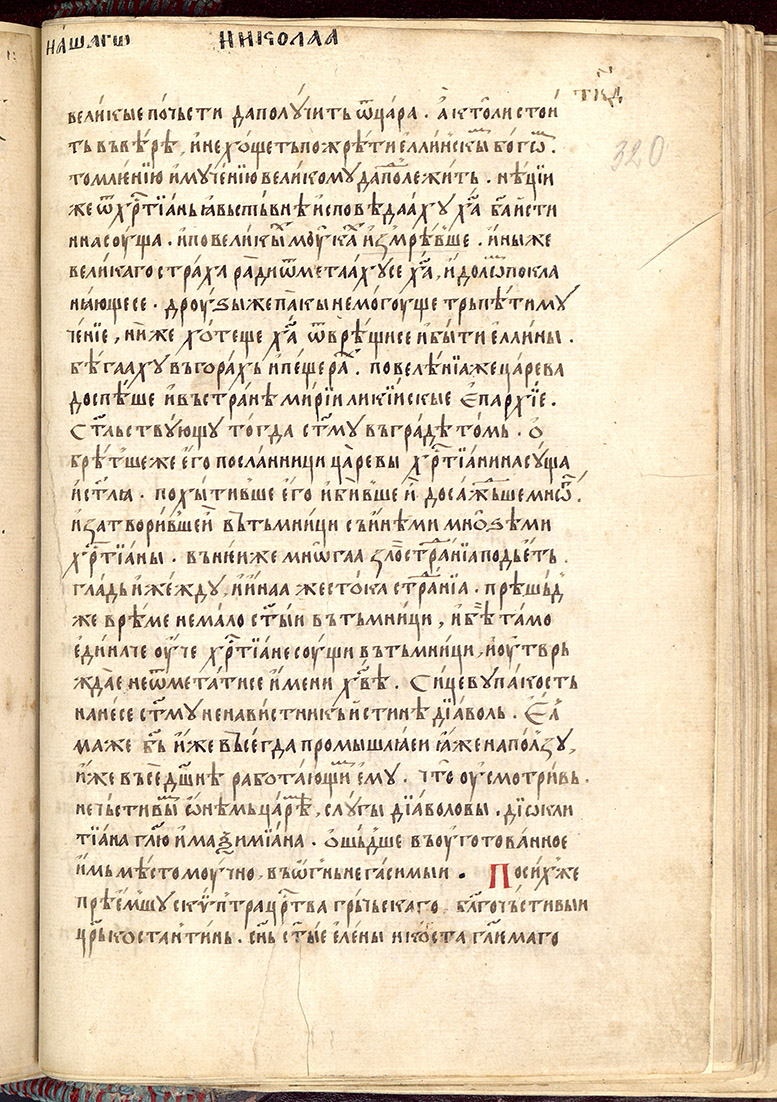 на́шагѡ николаа
тк҃д
320
великые по́чьсти даполу́чить ѿца́ра . а́ктѻ́ли стои́
ть въвѣ́рѣ , и҆нехо́щеть пожрѣ́ти є҆ллиньскы́мь бо́гѡⷨ .
томлю́нїю и҆му́ченїю великому да́поⷣлежи́ть . нѣ́цїи
же ѿхрⷭ҇тїа́нь ꙗ҆вьстьвнѣ и҆сповѣ́даахꙋ ха҃ ба҃ и҆сти
нна соу́ща . и҆по великы́ⷯ моу́каⷯ и҆ꙁмрѣ́вше . и҆ны́ же
вели́каго стра́ха ра́ди ѿметаа́хусе ха҃ , и҆доло́ⷨ покла
нꙗ́ющесе . дроуѕы́и же па́кы немогоу́ще трьпѣ́ти му́
че́нїе , ни́же хо́теще ха҃ ѿврѣ́щисе и҆бы́ти є҆́ллины .
бѣ́гааху въгора́хь и҆пещера́ⷯ . повелѣ́нїа же ца́рева
доспѣ́ше и҆въстра́нѣ мирїи ликїи́скые є҆па́рхїе .
ст҃льству́ющу тогда ст҃му въградѣ то́мь . ѻ
брѣ́тше же є҆го посла́нници ца́ревы хрⷭ҇тїа́нина су́ща
и҆ст҃лꙗ . похы́тивше є҆го и҆би́вше и҆ доса́жⷣьше мнѡ́ⷢ .
и҆ꙁатвори́вшеи̑ вътьмни́ци съи҆нѣ́ми мно́ѕѣми
хрⷭ҇тїа́ны . въню́иже мнѡ́гаа ꙁлостра́ⷣнїа подъе́ть .
гла́дь и҆же́жду , и҆и҆́наа жесто́каа стра́ⷣнїа . прѣшьⷣ
же врѣ́ме нема́ло ст҃ы́и вътьмни́ци , и҆бѣ̀ та́мо
є҆ди́наче оу҆́че хрⷭ҇тїа́не соу́щи вътьмни́ци , и҆оу҆твръ
жда́е неѿмета́тисе и҆мени хв҃ѣ . Сицеву па́кость
нанесе ст҃му ненави́стникъ и҆стинѣ дїа́воль . Є҆ⷧ
ма же бъ҃ и҆́же въсе́гда промышлꙗ́еи ꙗ҆́же на по́лꙁу ,
и҆́же въсѐдш҃нѣ рабо́тающиⷨ є҆му . что̀ оу҆смотри́вь .
нечьсти́выⷨ ѡ҆нѣ́мь ца́рѣⷨ , слу́гы дїа́воловы . дїѡкли
тїа́на гл҃ю и҆маѯимїа́на . ѻ҆шьⷣше въоу҆гото́ванное
и҆́мь мѣ́сто моу́чно , въѡ҆́гнь не гаси́мыи . По си́хже
прѣе҆́мшу скѵ́птра црⷭ҇тва грьчьскаго . бл҃гоче́стивыи
цр҃ь костанти́нь . сн҃ь ст҃ые є҆ле́ны и ко́ста гл҃ѥ́маго